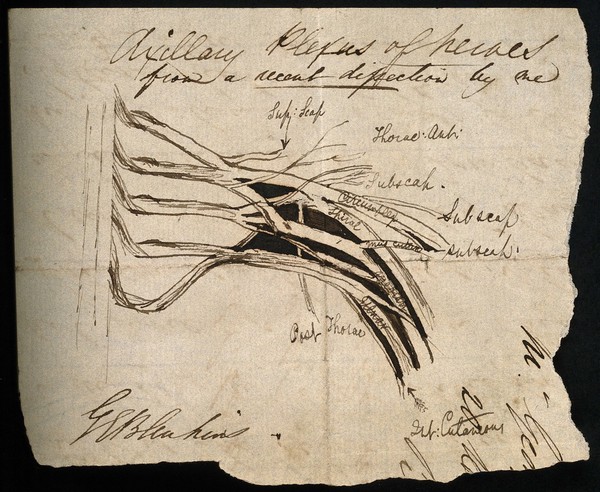 Axillary Plexus of Nerves
from a recent dissection by me
Sup: Scap
Thorac: Ant:
Subscap.
Circumflex
Spiral
Subscap
mus cutan
subscap:
Ulnar
Post Thorac
Int: Cutaneous